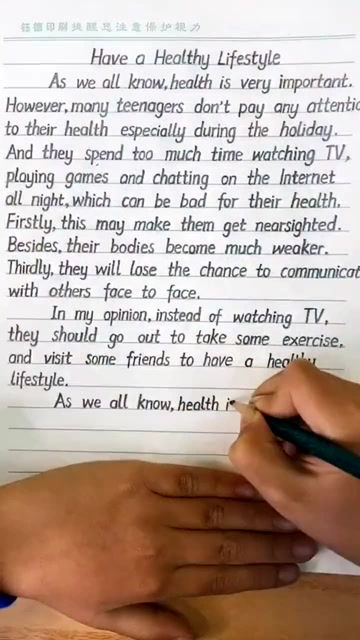 钰信印刷提醒您注意保护视力
Have a Healthy Lifestyle
As we all know, health is very important.
However, many teenagers don't pay any attentio
to their health especially during the holiday.
And they spend too much time watching TV,
playing games and chatting on the Internet
all night, which can be bad for their health.
Firstly, this may make them get nearsighted.
Besides, their bodies become much weaker.
Thirdly, they will lose the chance to communicat
with others face to face.
In my opinion, instead of watching TV,
they should go out to take some exercise,
and visit some friends to have a healthy
lifestyle.
As we all know, health i